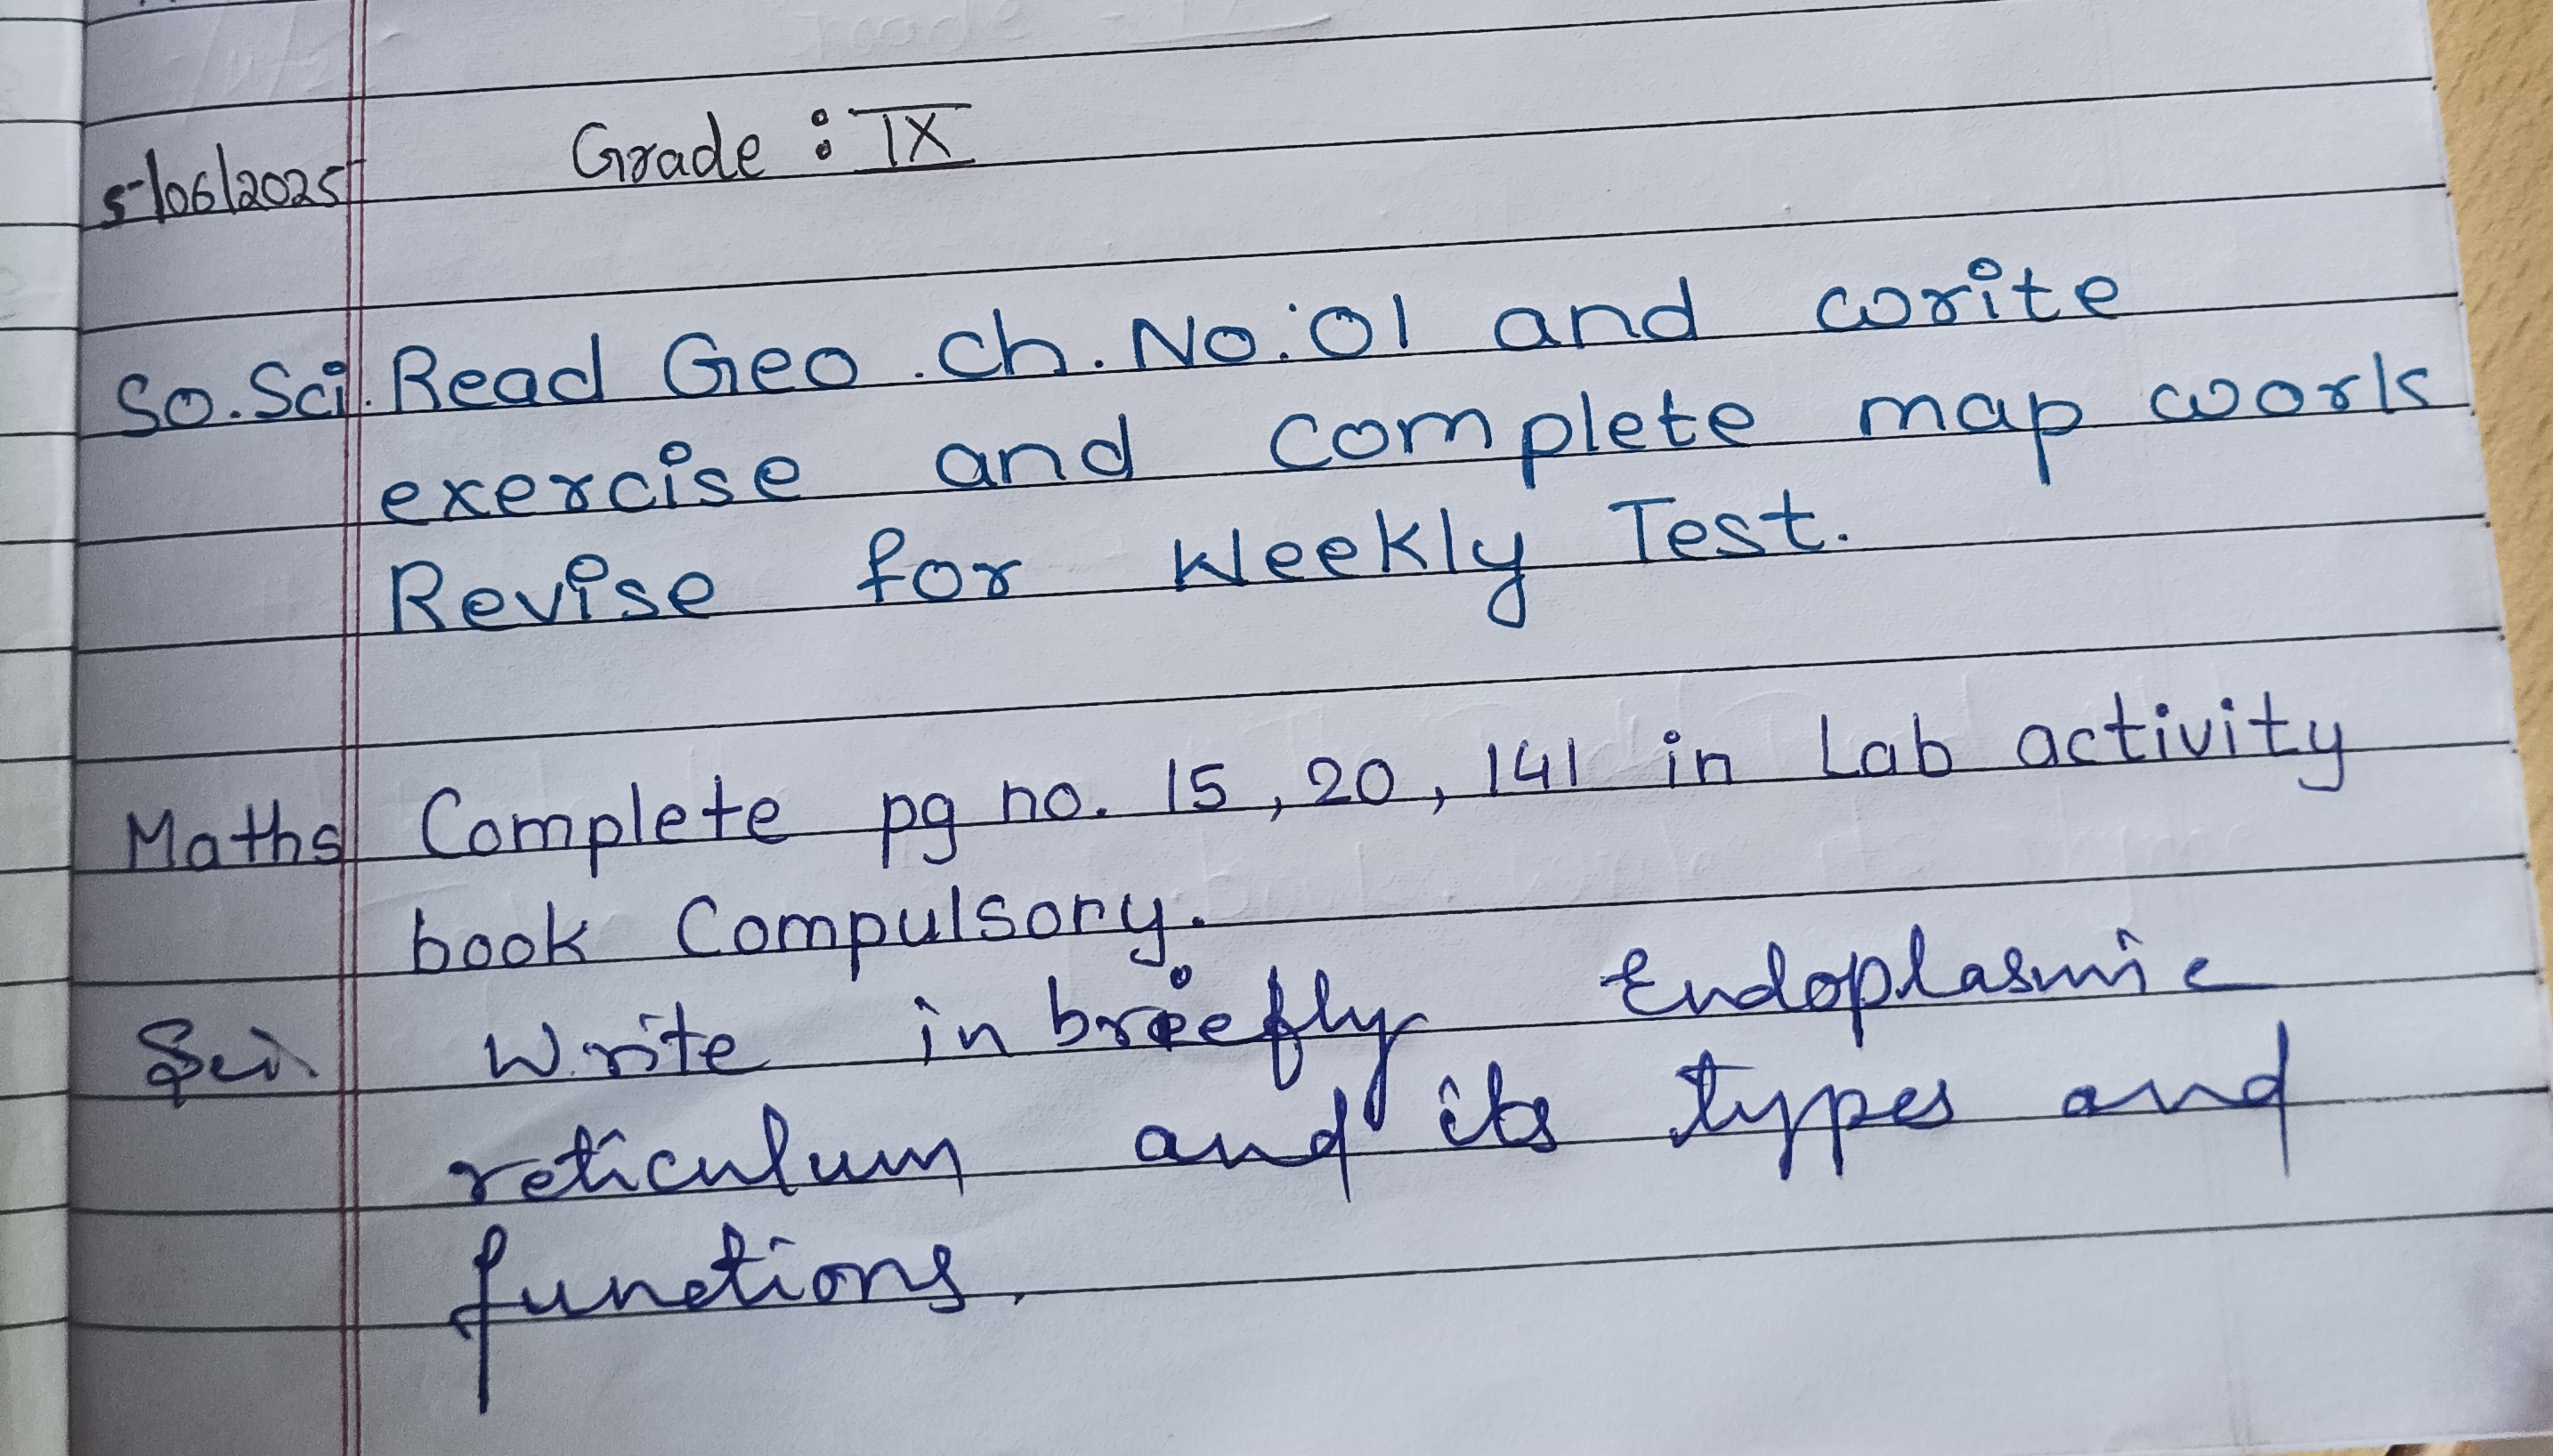 5/06/2025 Grade : IX
So.Sci. Read Geo. ch. No: 01 and write
exercise and complete map work
Revise for Weekly Test.
Maths Complete pg no. 15, 20, 141 in Lab activity
book Compulsory.
Sci. Write in briefly Endoplasmic
reticulum and its types and
functions.